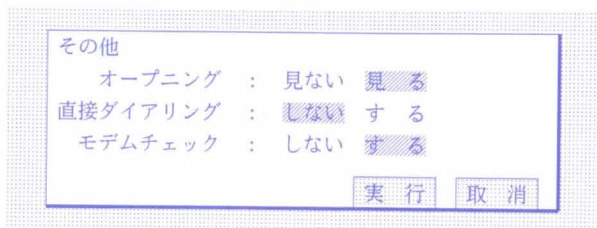 その他
オープニング : 見ない 見 る
直接ダイアリング : しない す る
モデムチェック : しない す る
実 行 取 消